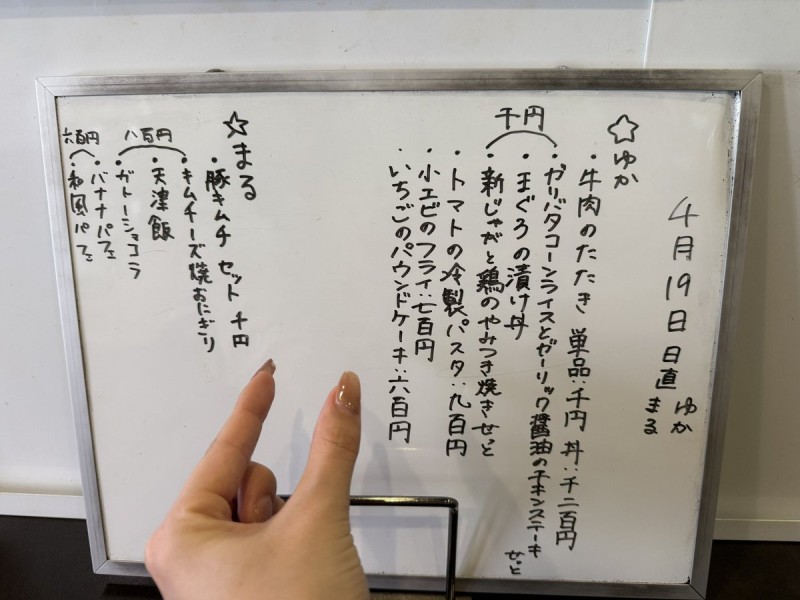 4月19日 日直 ゆか
まる
☆ゆか
・牛肉のたたき 単品：千円 丼：千二百円
千円
・ガリバタコーンライスとガーリック醤油のチキンステーキ
せっと
・まぐろの漬け丼
・新じゃがと鶏のやみつき焼きせっと
・トマトの冷製パスタ：九百円
・小エビのフライ：七百円
・いちごのパウンドケーキ：六百円
☆まる
・豚キムチセット 千円
・キムチーズ焼おにぎり
八百円
・天津飯
・ガトーショコラ
六百円
・バナナパフェ
・和風パフェ